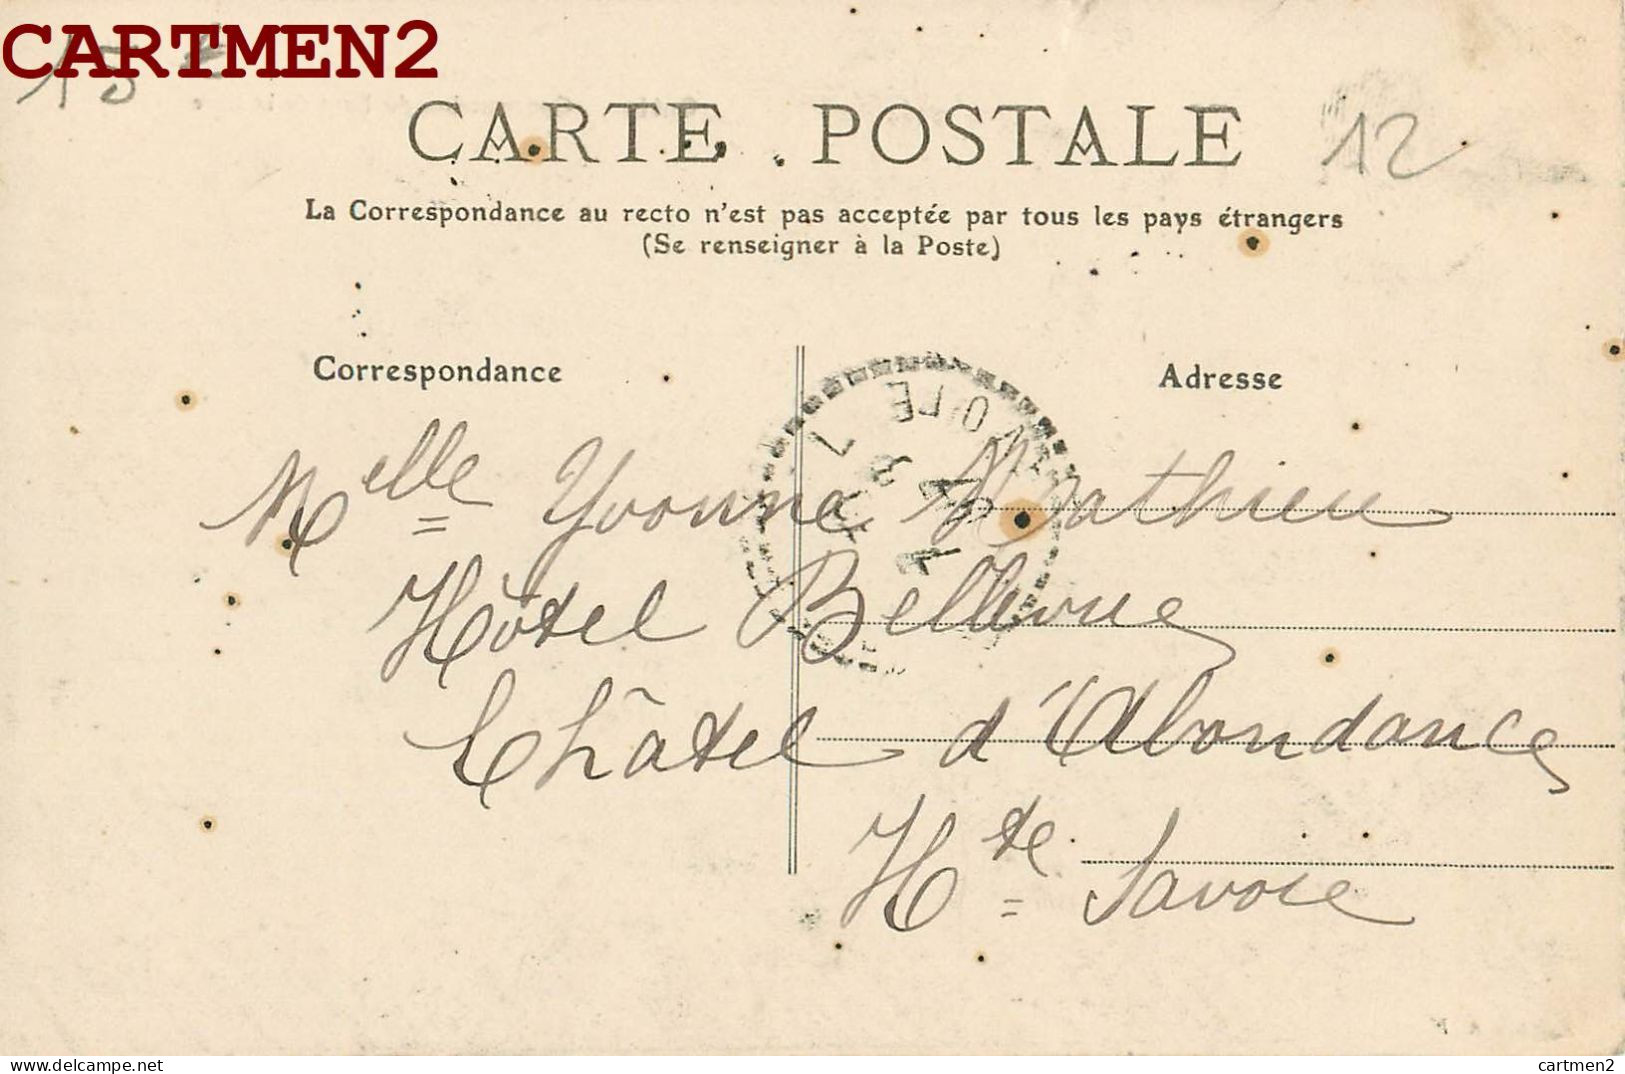 CARTMEN2
15
CARTE POSTALE
12
La Correspondance au recto n'est pas acceptée par tous les pays étrangers
(Se renseigner à la Poste)
Correspondance
Adresse
Melle Yvonne Mathieu
Hôtel Bellevue
Châtel d'Abondance
Hte Savoie
www.delcampe.net
cartmen2